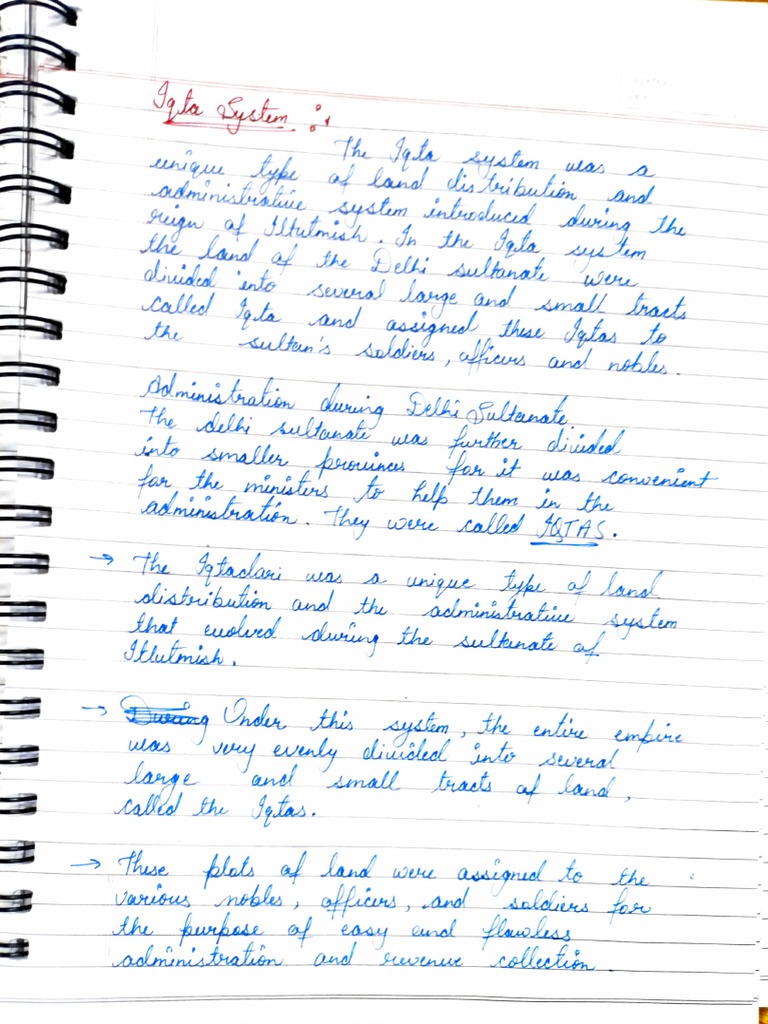 Iqta System :
The Iqta system was a
unique type of land distribution and
administrative system introduced during the
reign of Iltutmish. In the Iqta system
the land of the Delhi sultanate were
divided into several large and small tracts
called Iqta and assigned these Iqtas to
the sultan's soldiers, officers and nobles.
Administration during Delhi Sultanate.
The delhi sultanate was further divided
into smaller provinces for it was convenient
for the ministers to help them in the
administration. They were called IQTAS.
→ The Iqtadari was a unique type of land
distribution and the administrative system
that evolved during the sultanate of
Iltutmish.
→ During Under this system, the entire empire
was very evenly divided into several
large and small tracts of land,
called the Iqtas.
→ These plots of land were assigned to the
various nobles, officers, and soldiers for
the purpose of easy and flawless
administration and revenue collection